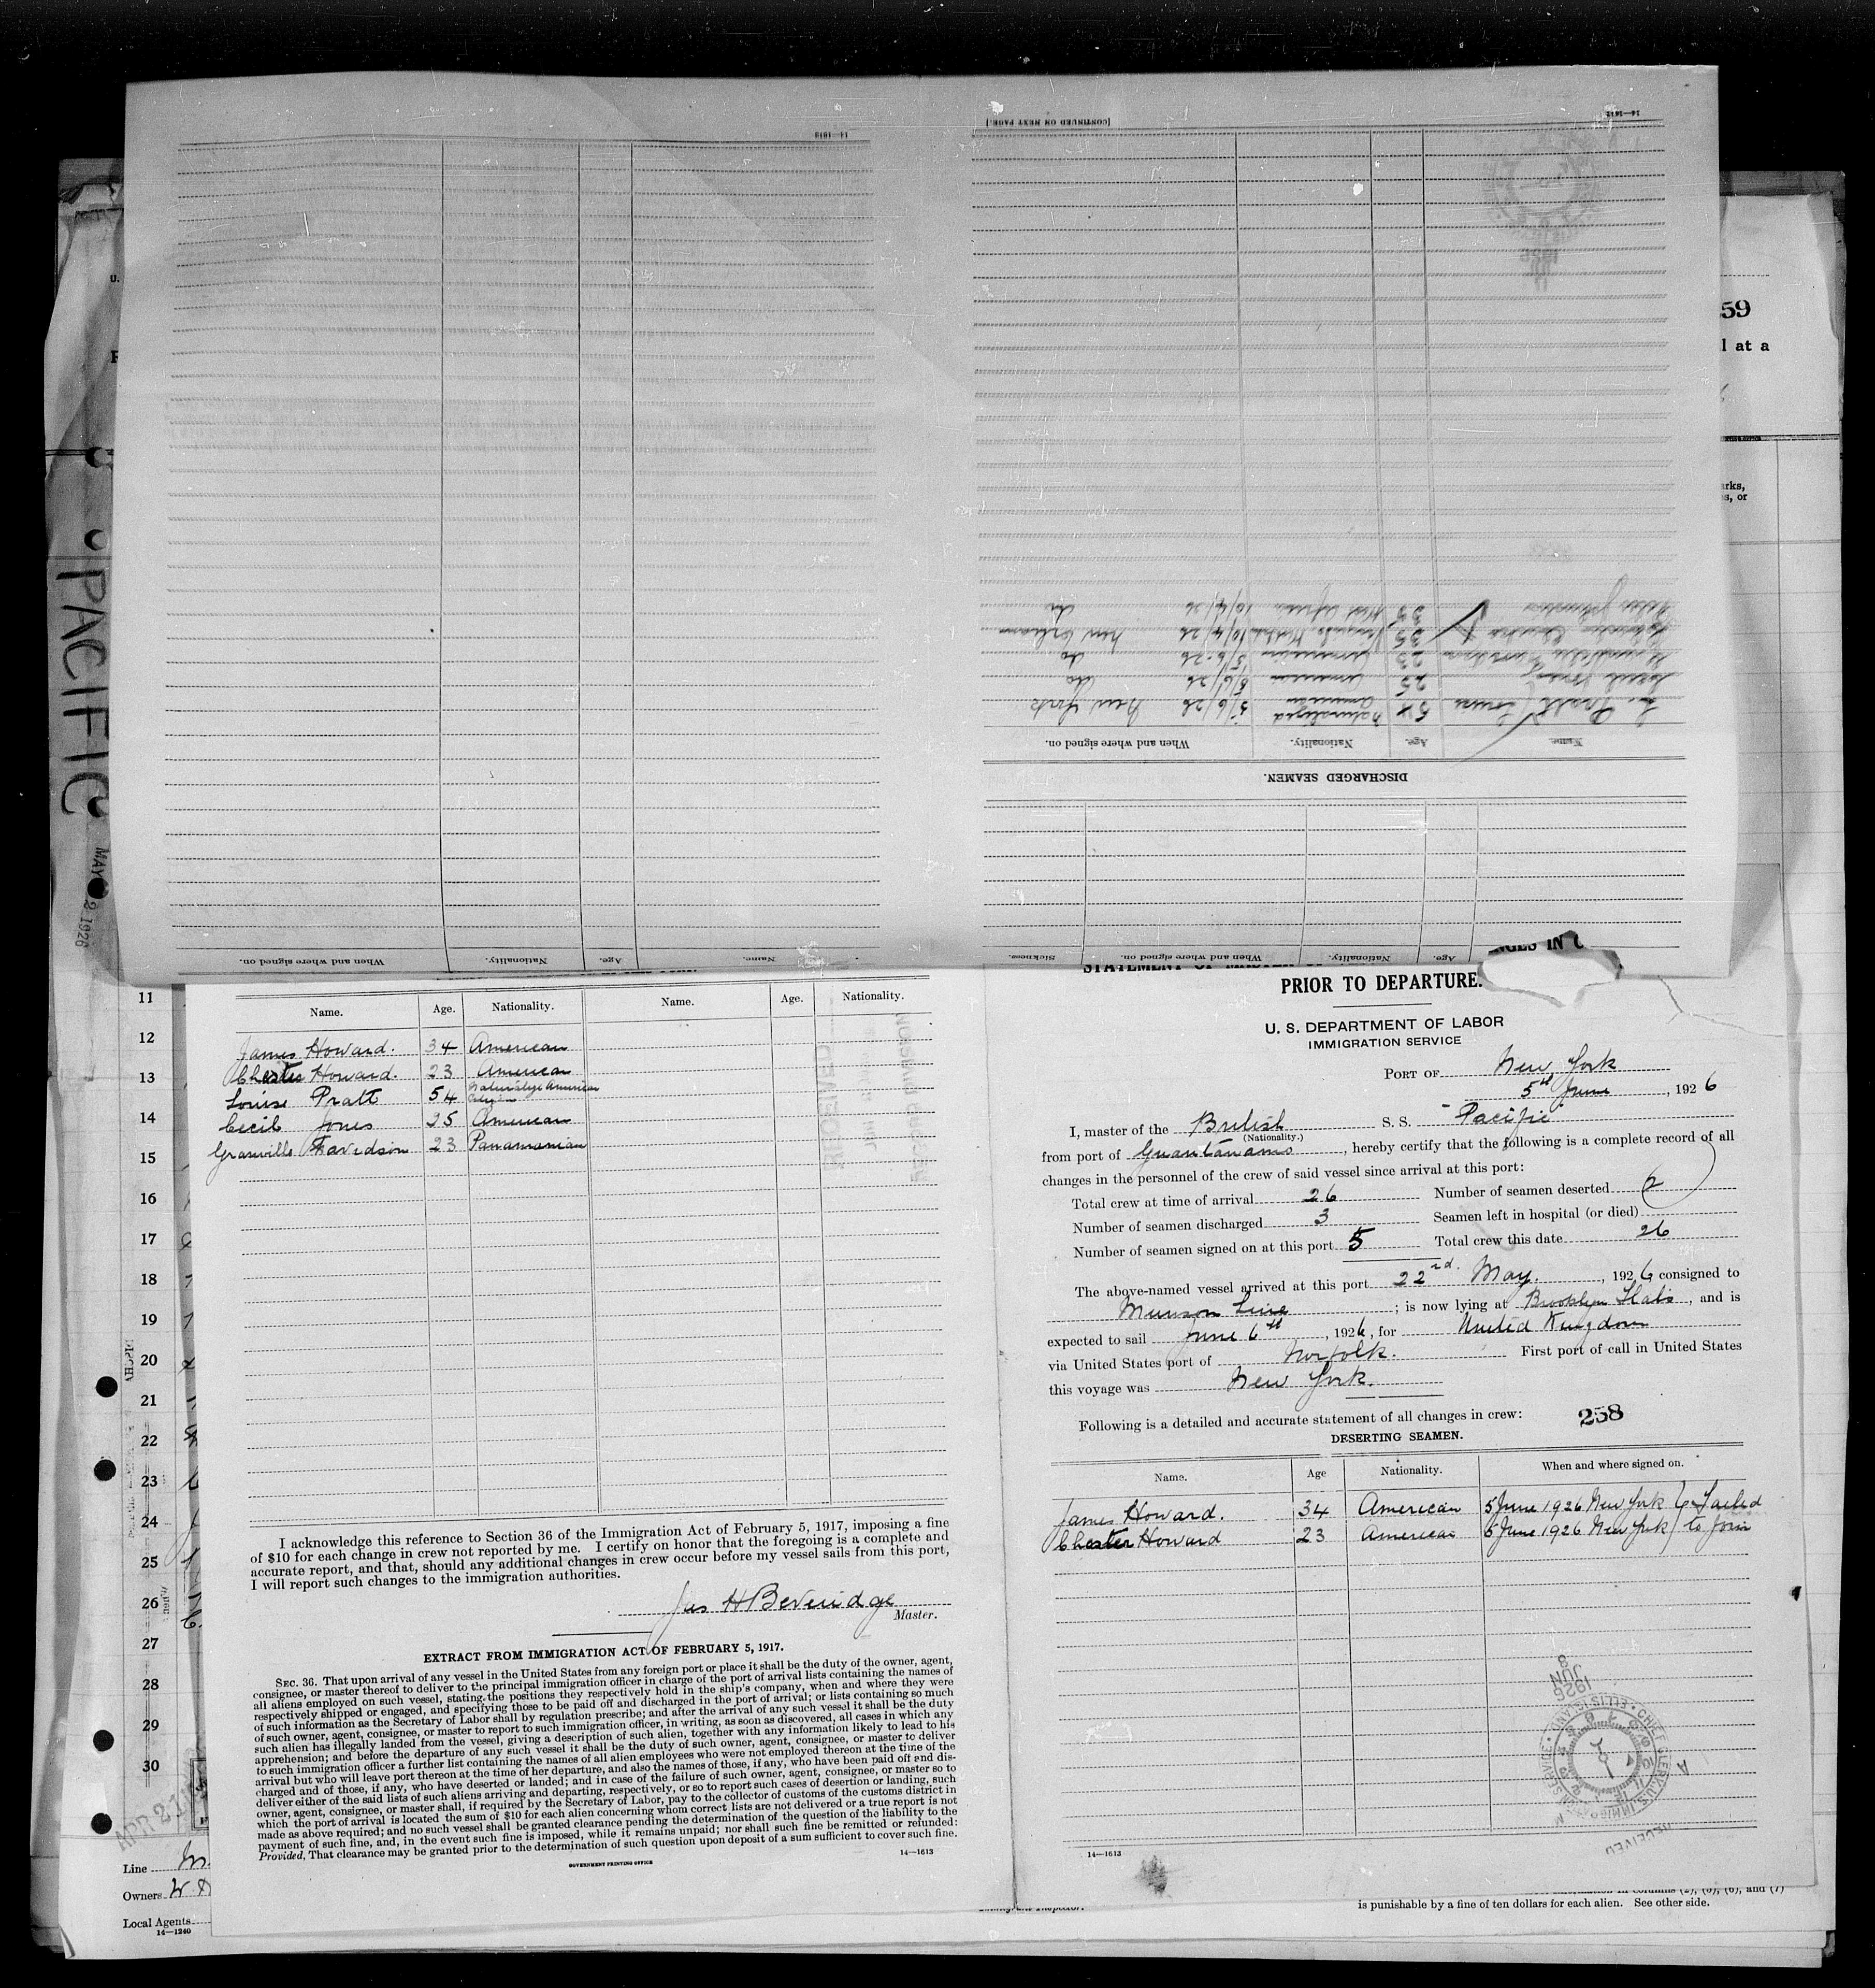 14—1613
[CONTINUED ON NEXT PAGE.]
14—1613
59
l at a
arks,
s, or
PACIFIC
MAY 2 1926
do
35
10/4/26
New Orleans
10/4/26
35
do
5/6/26
American
23
do
5/6/26
American
25
New York
5/6/26
Naturalized American
54
When and where signed on.
Nationality.
Age.
Name.
DISCHARGED SEAMEN.
When and where signed on.
Nationality.
Age.
Name.
Sickness.
When and where signed on.
Nationality.
Age.
NGES IN C
PRIOR TO DEPARTURE.
U. S. DEPARTMENT OF LABOR
IMMIGRATION SERVICE
PORT OF New York
5th June, 1926
I, master of the British S. S. "Pacific"
(Nationality.)
from port of Guantanamo, hereby certify that the following is a complete record of all
changes in the personnel of the crew of said vessel since arrival at this port:
Total crew at time of arrival 26 Number of seamen deserted 2
Number of seamen discharged 3 Seamen left in hospital (or died)
Number of seamen signed on at this port 5 Total crew this date 26
The above-named vessel arrived at this port 22nd. May., 1926 consigned to
Munson Line; is now lying at Brooklyn Flats, and is
expected to sail June 6th, 1926, for United Kingdom
via United States port of Norfolk. First port of call in United States
this voyage was New York.
Following is a detailed and accurate statement of all changes in crew: 258
DESERTING SEAMEN.
Name. Age Nationality. When and where signed on.
James Howard. 34 American 5 June 1926 New York } Failed
Chester Howard 23 American 5 June 1926 New York } to join
1926
JUN
8
RECEIVED
14—1613
Name. Age. Nationality. Name. Age. Nationality.
James Howard. 34 American
Chester Howard. 23 American
Louise Pratt 54 Naturalize American Citizen
Cecil Jones 25 American
Granville Davidson 23 Panamanian
I acknowledge this reference to Section 36 of the Immigration Act of February 5, 1917, imposing a fine
of $10 for each change in crew not reported by me. I certify on honor that the foregoing is a complete and
accurate report, and that, should any additional changes in crew occur before my vessel sails from this port,
I will report such changes to the immigration authorities.
Jas H Beveridge
Master.
EXTRACT FROM IMMIGRATION ACT OF FEBRUARY 5, 1917.
SEC. 36. That upon arrival of any vessel in the United States from any foreign port or place it shall be the duty of the owner, agent,
consignee, or master thereof to deliver to the principal immigration officer in charge of the port of arrival lists containing the names of
all aliens employed on such vessel, stating the positions they respectively hold in the ship's company, when and where they were
respectively shipped or engaged, and specifying those to be paid off and discharged in the port of arrival; or lists containing so much
of such information as the Secretary of Labor shall by regulation prescribe; and after the arrival of any such vessel it shall be the duty
of such owner, agent, consignee, or master to report to such immigration officer, in writing, as soon as discovered, all cases in which any
such alien has illegally landed from the vessel, giving a description of such alien, together with any information likely to lead to his
apprehension; and before the departure of any such vessel it shall be the duty of such owner, agent, consignee, or master to deliver
to such immigration officer a further list containing the names of all alien employees who were not employed thereon at the time of the
arrival but who will leave port thereon at the time of her departure, and also the names of those, if any, who have been paid off and dis-
charged and of those, if any, who have deserted or landed; and in case of the failure of such owner, agent, consignee, or master so to
deliver either of the said lists of such aliens arriving and departing, respectively, or so to report such cases of desertion or landing, such
owner, agent, consignee, or master shall, if required by the Secretary of Labor, pay to the collector of customs of the customs district in
which the port of arrival is located the sum of $10 for each alien concerning whom correct lists are not delivered or a true report is not
made as above required; and no such vessel shall be granted clearance pending the determination of the question of the liability to the
payment of such fine, and, in the event such fine is imposed, while it remains unpaid; nor shall such fine be remitted or refunded:
Provided, That clearance may be granted prior to the determination of such question upon deposit of a sum sufficient to cover such fine.
GOVERNMENT PRINTING OFFICE
14—1613
11
12
13
14
15
16
17
18
19
20
21
22
23
24
25
26
27
28
29
30
APR 21
Line
Owners
Local Agents
14—1240
is punishable by a fine of ten dollars for each alien. See other side.